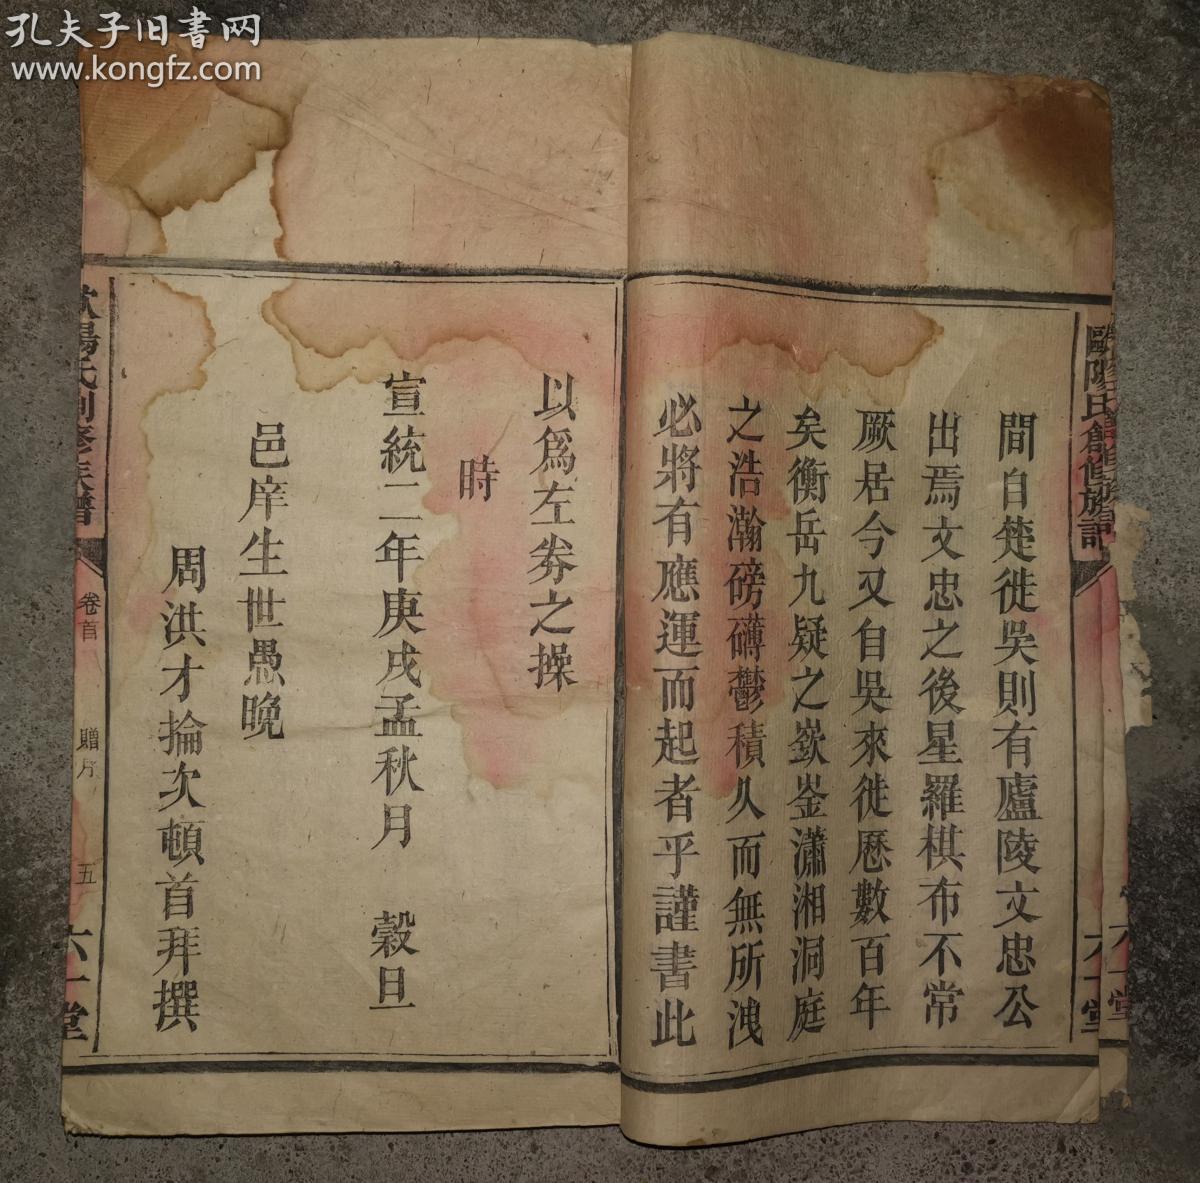 孔夫子旧書网
www.kongfz.com
歐陽氏創修族譜
六一堂
間自楚徙吳則有廬陵文忠公
出焉文忠之後星羅棋布不常
厥居今又自吳來徙歷數百年
矣衡岳九疑之嶔崟瀟湘洞庭
之浩瀚磅礴鬱積久而無所洩
必將有應運而起者乎謹書此
以爲左劵之操
時
宣統二年庚戌孟秋月 穀旦
邑庠生世愚晚
周洪才掄次頓首拜撰
歐陽氏創修族譜
卷首
贈序
五
六一堂